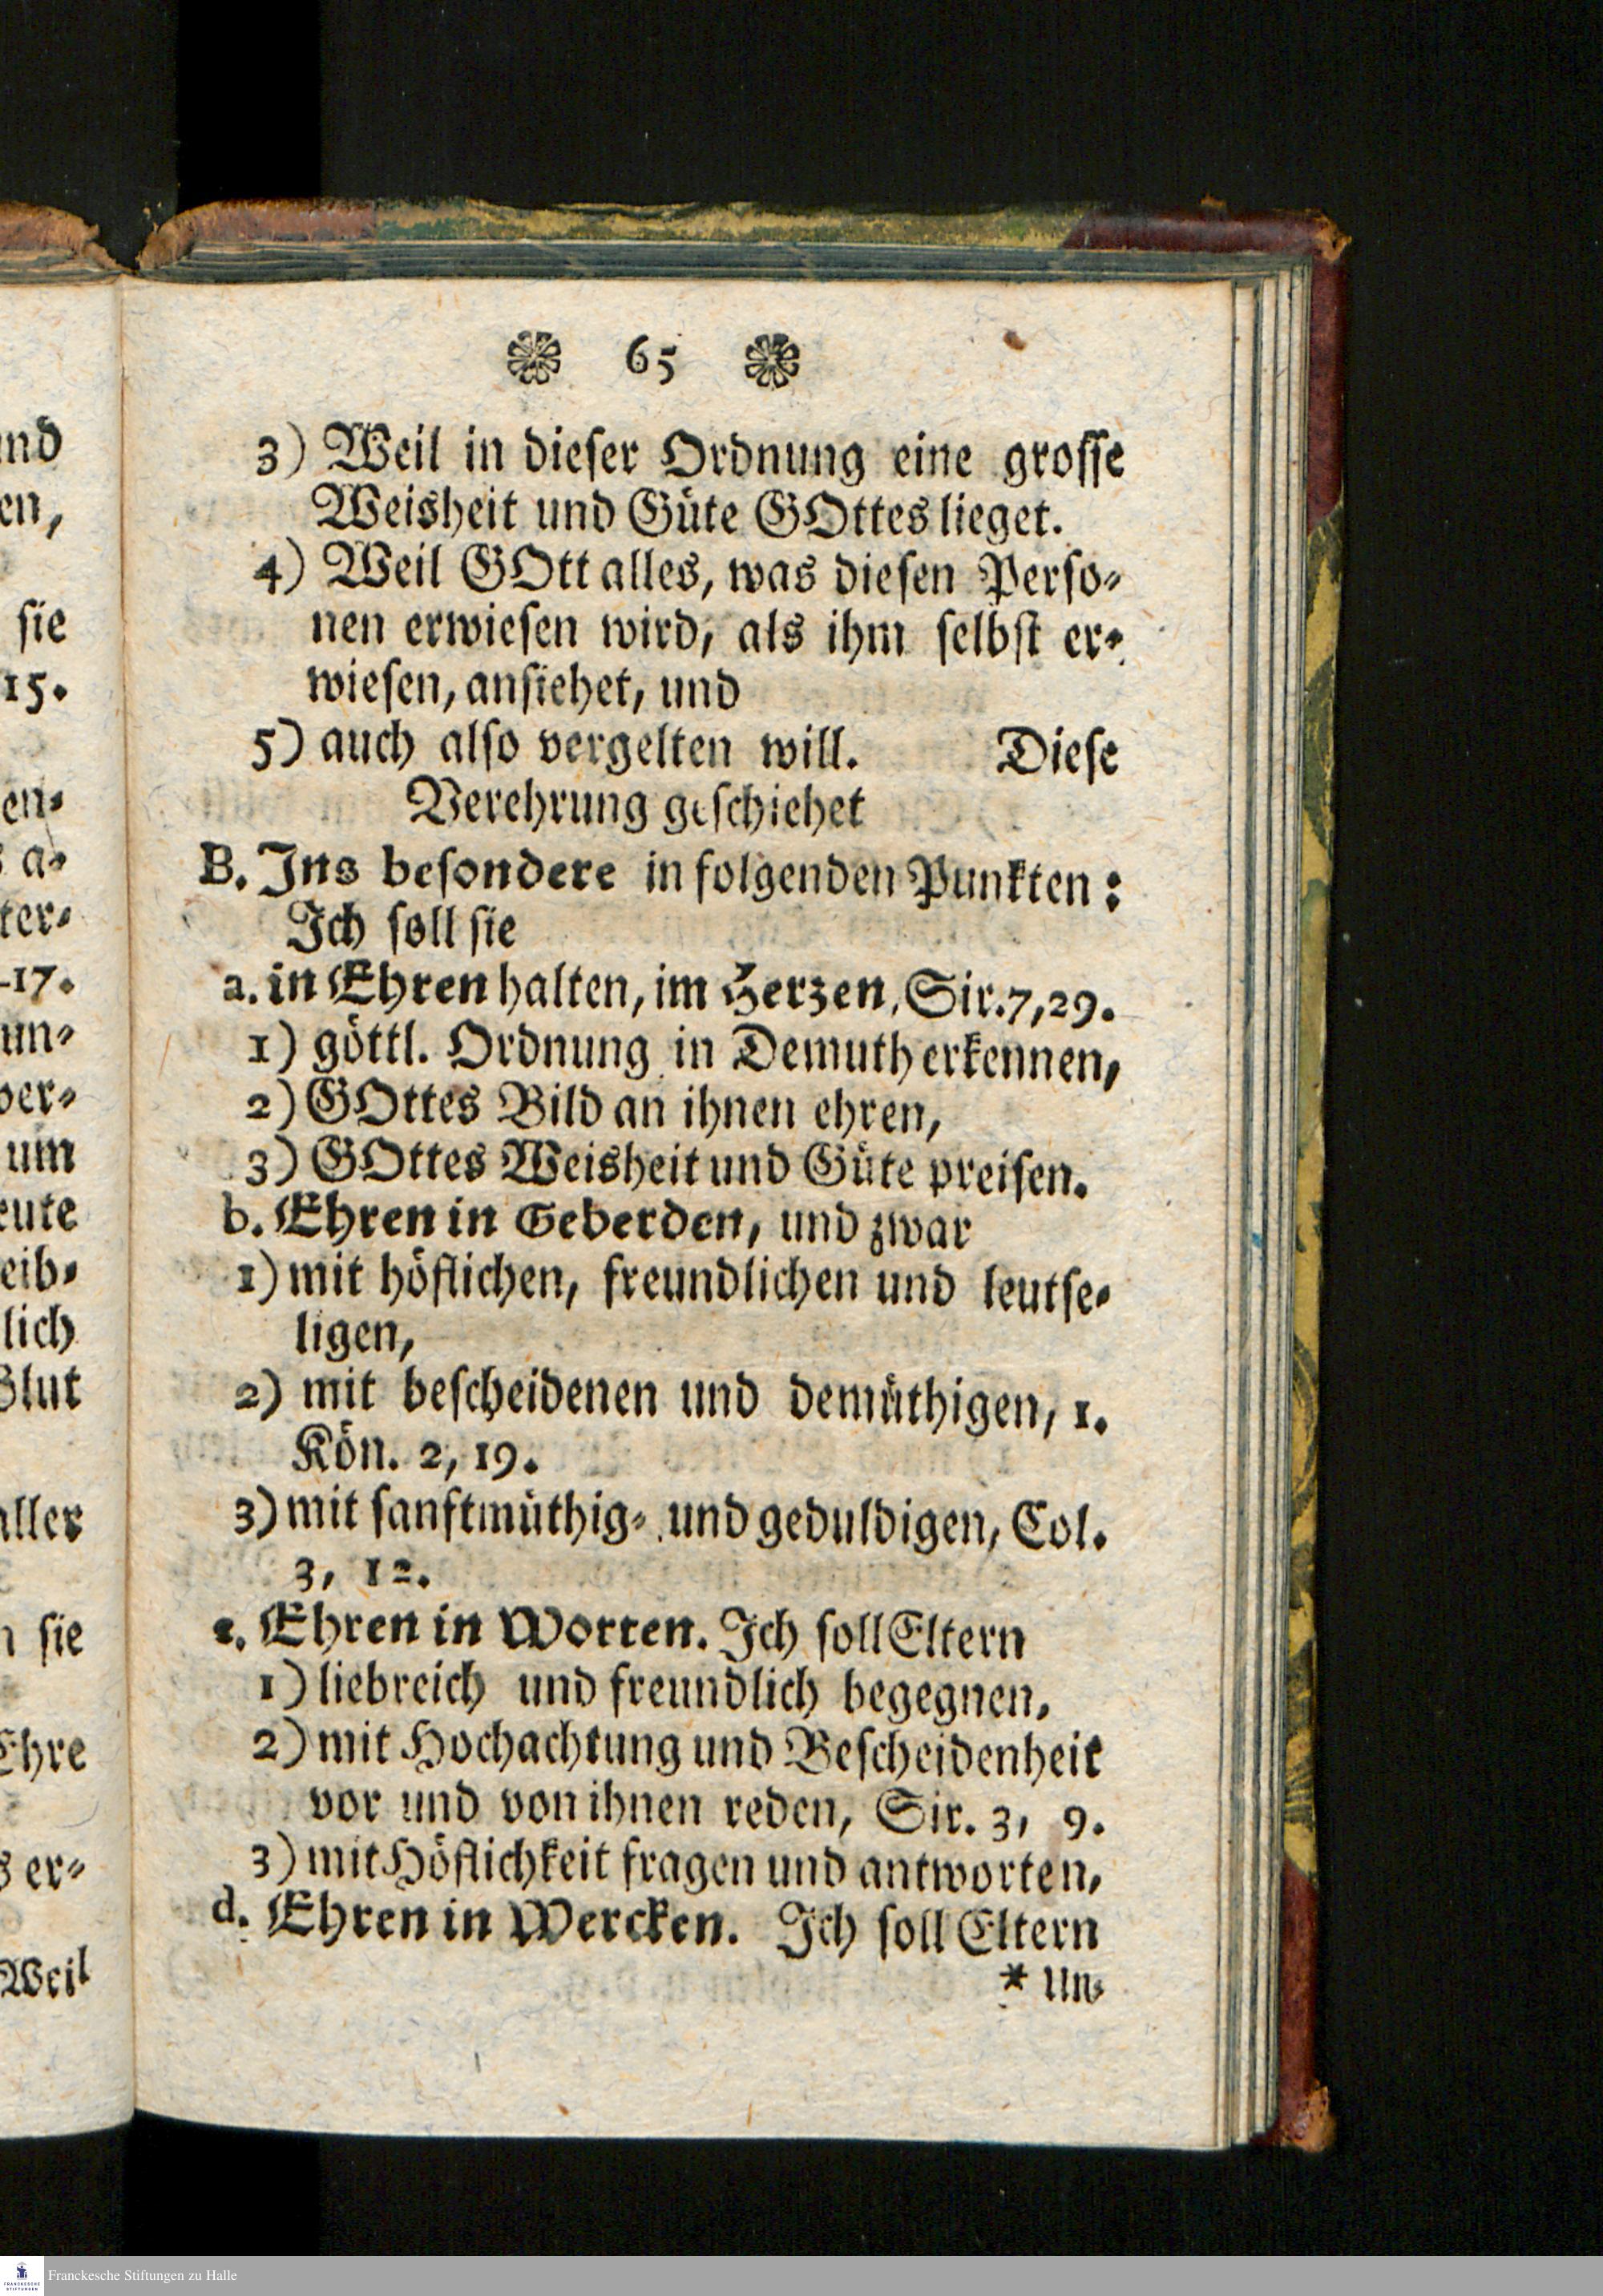 und
en,
sie
15.
en-
s a-
ter-
-17.
un-
ver-
um
eute
eib-
lich
Blut
aller
sie
Ehre
s er-
Weil
65
3) Weil in dieser Ordnung eine grosse
Weisheit und Güte GOttes lieget.
4) Weil GOtt alles, was diesen Perso-
nen erwiesen wird, als ihm selbst er-
wiesen, ansiehet, und
5) auch also vergelten will. Diese
Verehrung geschiehet
B. Ins besondere in folgenden Punkten:
Ich soll sie
a. in Ehren halten, im Herzen, Sir. 7, 29.
1) göttl. Ordnung in Demuth erkennen,
2) GOttes Bild an ihnen ehren,
3) GOttes Weisheit und Güte preisen.
b. Ehren in Geberden, und zwar
1) mit höflichen, freundlichen und leutse-
ligen,
2) mit bescheidenen und demüthigen, 1.
Kön. 2, 19.
3) mit sanftmüthig- und geduldigen, Col.
3, 12.
c. Ehren in Worten. Ich soll Eltern
1) liebreich und freundlich begegnen,
2) mit Hochachtung und Bescheidenheit
vor und von ihnen reden, Sir. 3, 9.
3) mit Höflichkeit fragen und antworten,
d. Ehren in Wercken. Ich soll Eltern
* Un-
FRANCKESCHE
STIFTUNGEN
Franckesche Stiftungen zu Halle